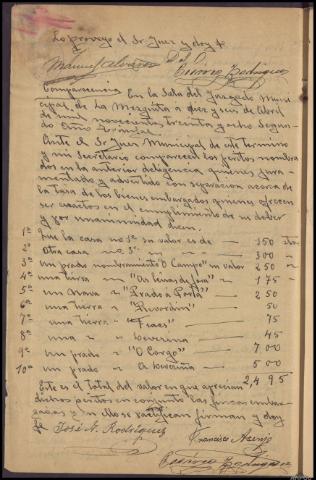 Lo proveyo el Sr Juez y doy fé
Manuel Alvarez D. S. O.
Eurico Rodriguez
Comparecencia En la Sala del Juzgado Muni-
cipal de La Mezquita a diez y seis de Abril
de mil novecientos treinta y ocho Segun-
do Año Triunfal.
Ante el Sr Juez Municipal de este termino
y mi Secretario comparecen los peritos nombra-
dos en la anterior diligencia quienes jura-
mentados y advertido con separacion acerca de
la tasa de los bienes embargados quienes ofrecen
ser exactos en el cumplimiento de su deber
y por unanimidad dicen.
1ª Que la casa nº 1º su valor es de — 350 ptas.
2ª Otra casa nº 3º " " " — 300 "
3ª Un prado nombramiento O Campo su valor 250 "
4ª una tierra " " — 175 "
5ª una Nava " "Prado a Porta" — 250
6ª una tierra " — 50
7ª una tierra " — 75
8ª una " — 45
9ª Un prado " "O Corgo" — 700
10ª un prado " — 500
Este es el total del valor en que aprecian 2,495
dichos peritos en conjunto las fincas embar-
gadas y en ello se ratifican firman y doy
fé José N. Rodriguez
Francisco Asenjo
Eurico Rodriguez